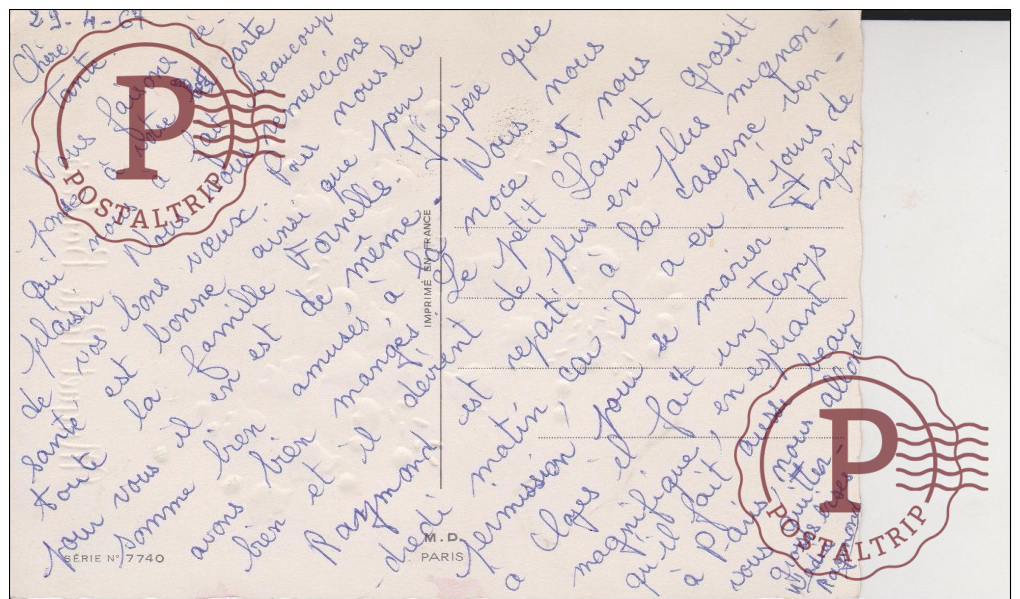 29-4-67
Chère Tante.
Nous faisons ré-
ponse à votre carte
qui nous a fait beaucoup
de plaisir. Nous vous remercions
de vos bons vœux. Pour nous la
santé est bonne ainsi que pour
toute la famille
pour vous il en est de même. J'espère que
nous
somme bien amusés à la noce et nous
avons bien mangés. Le petit Laurent grossit
bien et il devient de plus en plus mignon.
Raymond est reparti à la caserne ven-
dredi matin, car il a eu 4 jours de
permission pour se marier. Enfin
a Clayes il fait un temps
magnifique, en espérant
qu'il fait aussi beau
à Paris nous allons
vous quitter
grosses bises
Raymond
IMPRIMÉ EN FRANCE
SÉRIE N° 7740
M.D.
PARIS
P
POSTALTRIP
P
POSTALTRIP